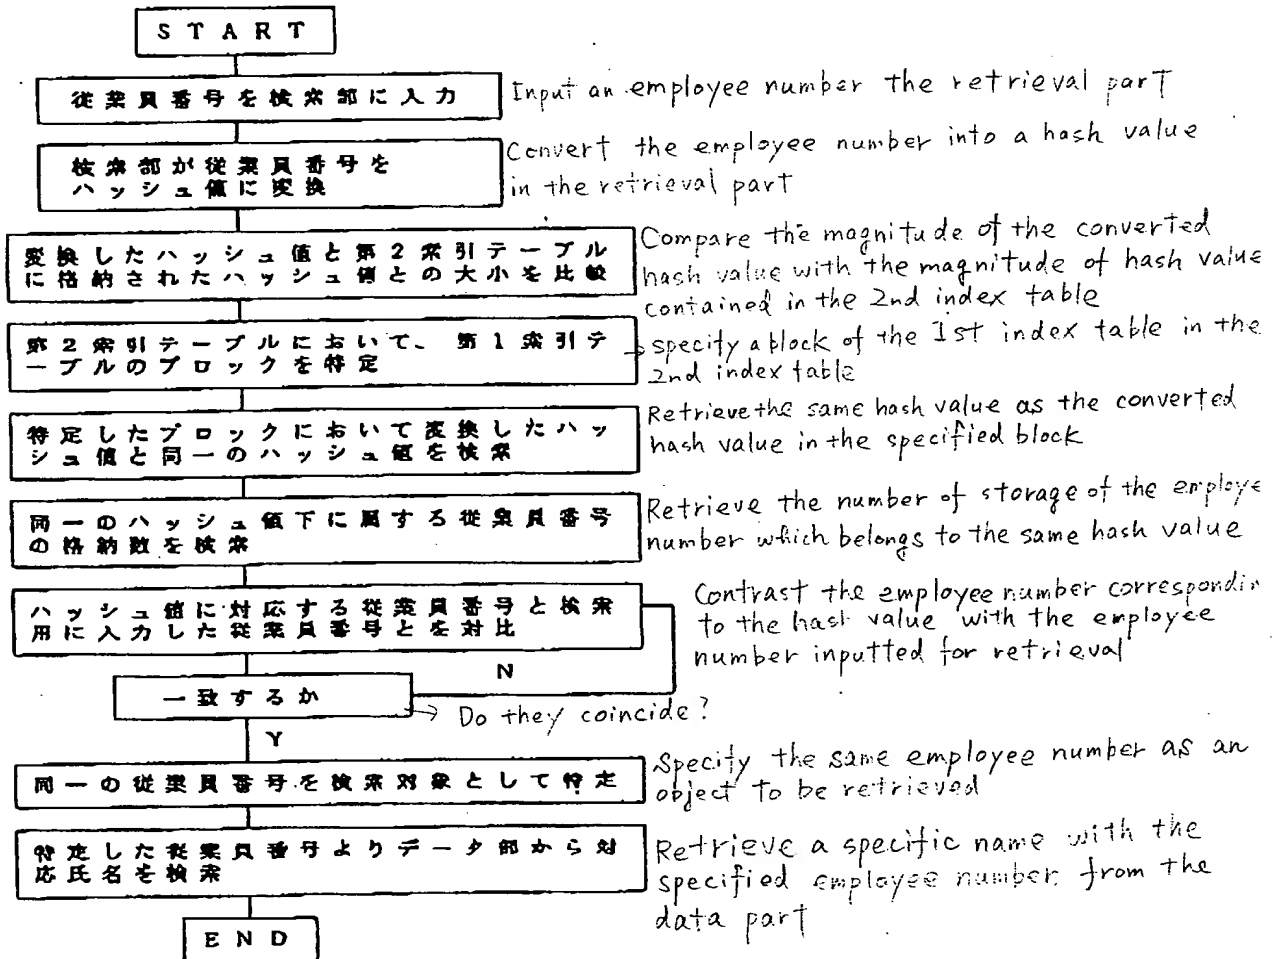 START
従業員番号を検索部に入力
Input an employee number the retrieval part
検索部が従業員番号を
ハッシュ値に変換
Convert the employee number into a hash value
in the retrieval part
変換したハッシュ値と第2索引テーブル
に格納されたハッシュ値との大小を比較
Compare the magnitude of the converted
hash value with the magnitude of hash value
contained in the 2nd index table
第2索引テーブルにおいて、第1索引テ
ーブルのブロックを特定
→ specify a block of the 1st index table in the
2nd index table
特定したブロックにおいて変換したハッ
シュ値と同一のハッシュ値を検索
Retrieve the same hash value as the converted
hash value in the specified block
同一のハッシュ値下に属する従業員番号
の格納数を検索
Retrieve the number of storage of the employe
number which belongs to the same hash value
ハッシュ値に対応する従業員番号と検索
用に入力した従業員番号とを対比
Contrast the employee number correspondin
to the hash value with the employee
number inputted for retrieval
N
一致するか
→ Do they coincide?
Y
同一の従業員番号を検索対象として特定
Specify the same employee number as an
object to be retrieved
特定した従業員番号よりデータ部から対
応氏名を検索
Retrieve a specific name with the
specified employee number from the
data part
END